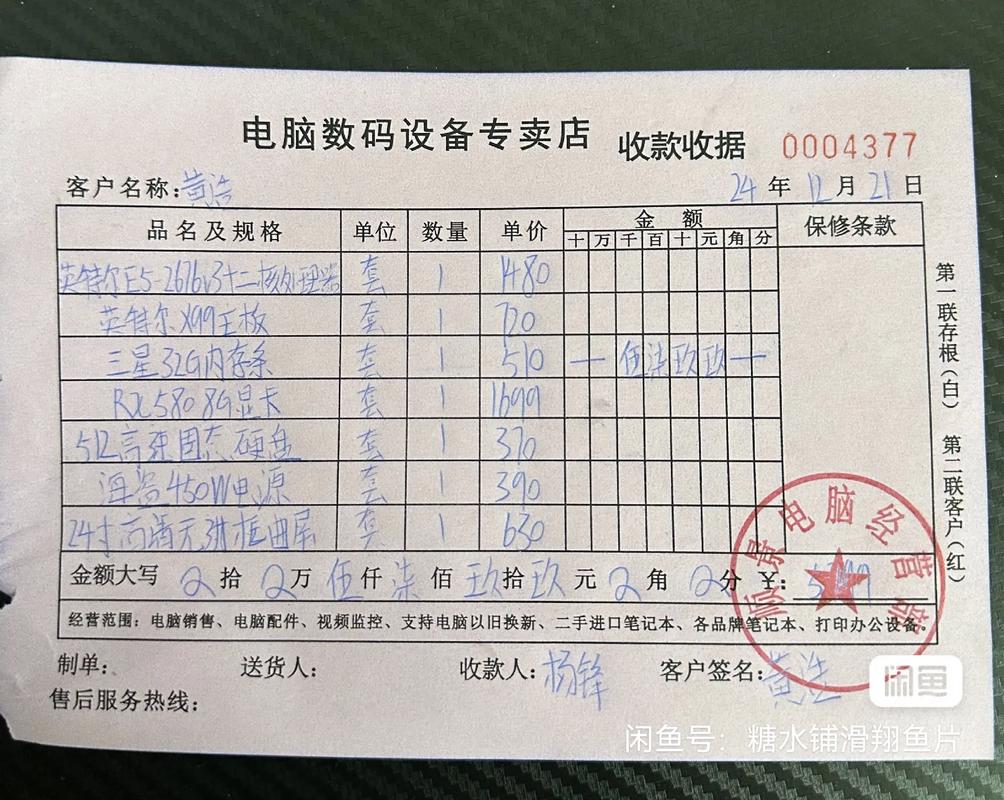 电脑数码设备专卖店 收款收据 0004377
客户名称:黄浩 24年12月21日
品名及规格 单位 数量 单价 金额 保修条款
十 万 千 百 十 元 角 分
英特尔E5-2676v3十二核处理器 套 1 1480
英特尔X99主板 套 1 720
三星32G内存条 套 1 510 一 伍柒玖玖 一
RX580 8G显卡 套 1 1699
512高速固态硬盘 套 1 370
海盗450W电源 套 1 390
24寸高清无边框曲屏 套 1 630
金额大写 0拾0万伍仟柒佰玖拾玖元0角0分 ¥:5799
经营范围:电脑销售、电脑配件、视频监控、支持电脑以旧换新、二手进口笔记本、各品牌笔记本、打印办公设备。
制单: 送货人: 收款人:杨锋 客户签名:黄浩
售后服务热线:
第一联存根(白) 第二联客户(红)
景电脑经营部
闲鱼
闲鱼号:糖水铺滑翔鱼片